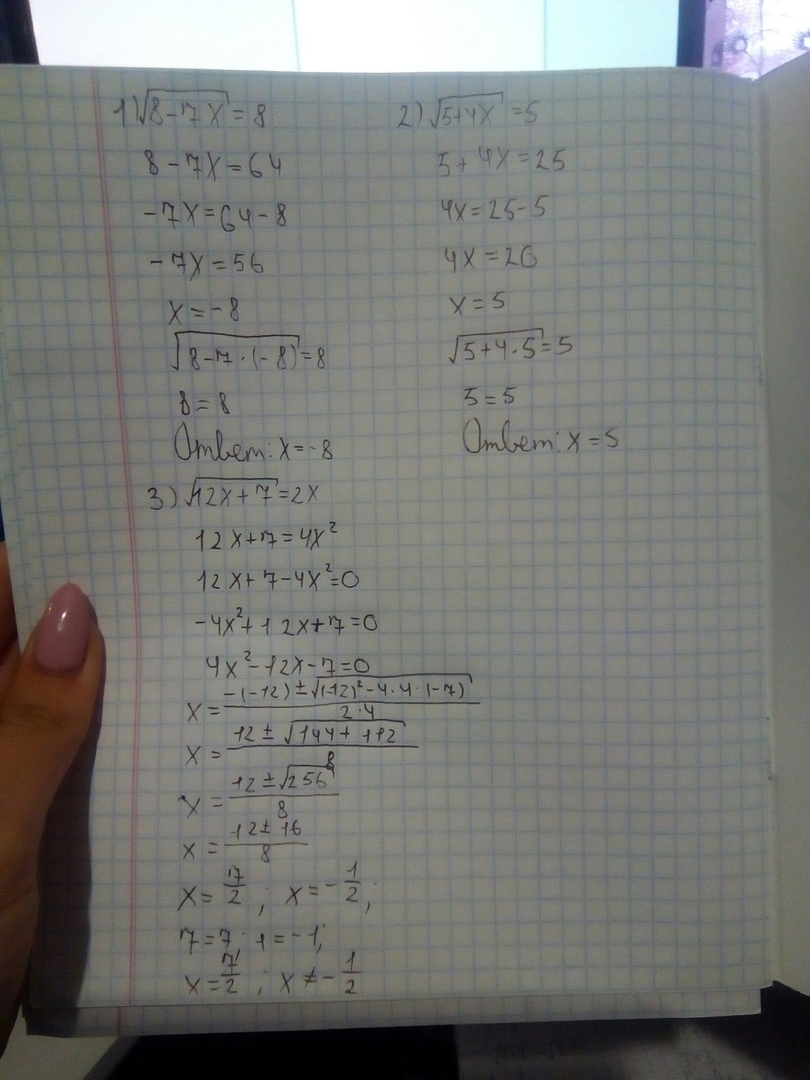 1) √(8-7x) = 8
8 - 7x = 64
-7x = 64 - 8
-7x = 56
x = -8
√(8-7·(-8)) = 8
8 = 8
Ответ: x = -8
2) √(5+4x) = 5
5 + 4x = 25
4x = 25-5
4x = 20
x = 5
√(5+4·5) = 5
5 = 5
Ответ: x = 5
3) √(12x+7) = 2x
12x+7 = 4x²
12x+7-4x²=0
-4x²+12x+7=0
4x²-12x-7=0
x = (-(-12) ± √((-12)²-4·4·(-7)))/(2·4)
x = (12 ± √(144+112))/8
x = (12 ± √256)/8
x = (12 ± 16)/8
x = 7/2 ; x = -1/2;
7=7; 1=-1;
x = 7/2 ; x ≠ -1/2